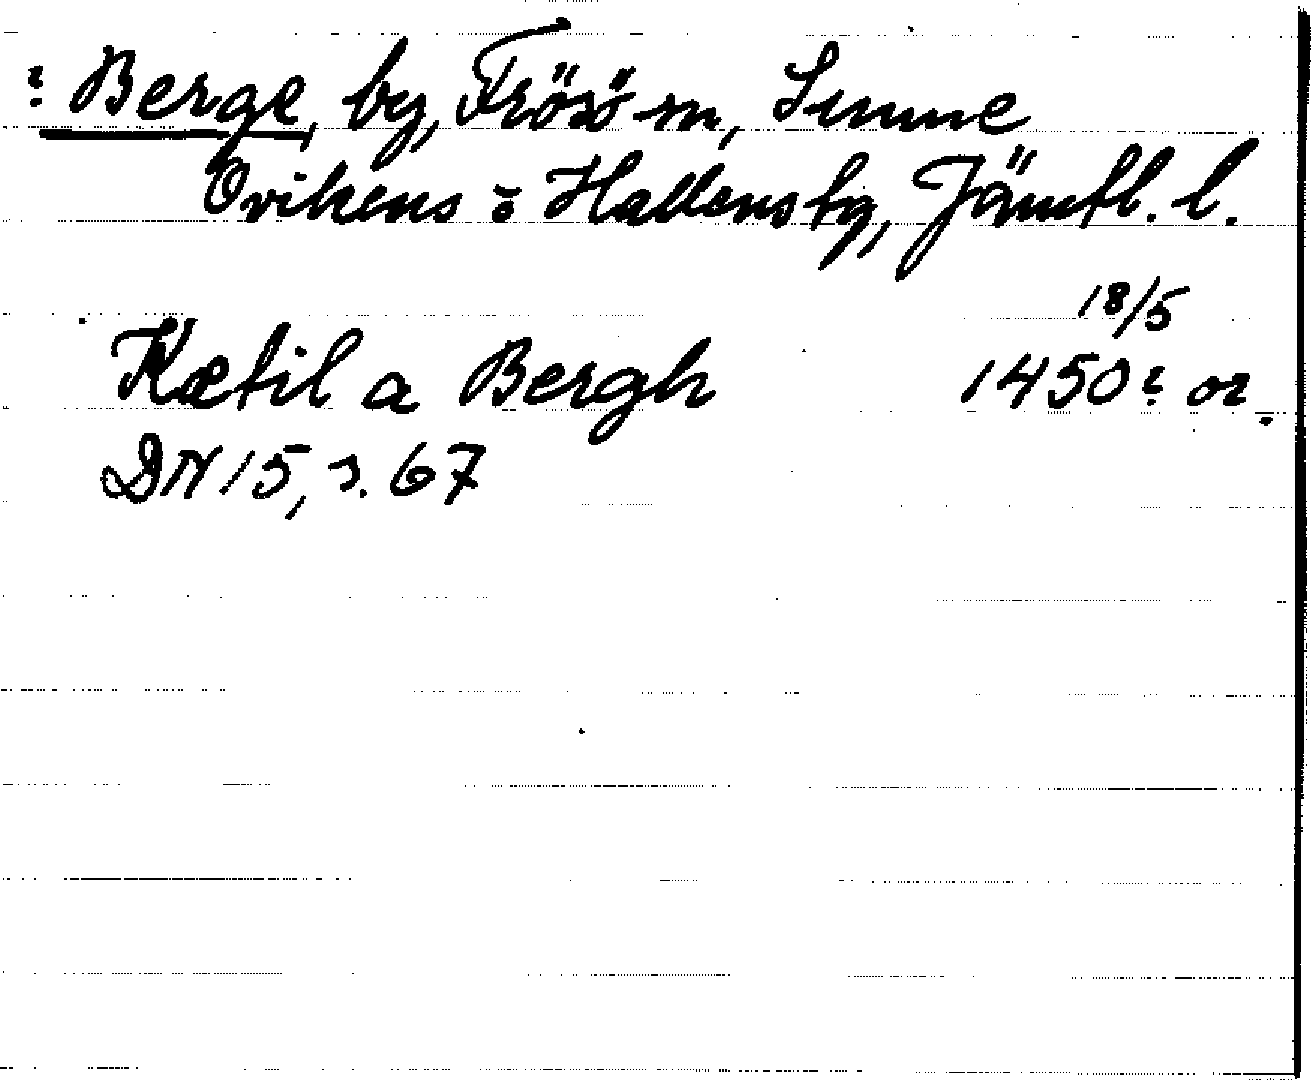 ? Berge, by, Frösö sn, Sunne
Ovikens o Hallens tg, Jämtl. l.
18/5
Kætil a Bergh 1450? or.
DN 15, s. 67